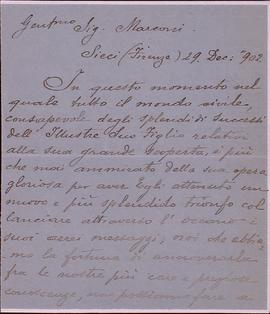 Gentmo Sig. Marconi.
Sieci (Firenze) 29 Dec: 902.
In questo momento nel
quale tutto il mondo civile,
consapevole degli splendidi successi
dell'Illustre di Lei Figlio relativi
alla sua grande scoperta, è più
che mai ammirato della sua opera
gloriosa per aver Egli ottenuto un
nuovo e più splendido trionfo col
lanciare attraverso l'oceano i
suoi aerei messaggi, noi che abbia-
mo la fortuna di annoverarla
fra le nostre più care e pregiose
conoscenze, non possiamo fare a